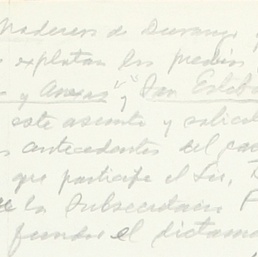 Maderera de Durango y
explotan los predios
y Anexas" y "San Esteba
este asunto y solicit
antecedentes del cas
que participe el Lic.
la Subsecretaría F
funde el dictam